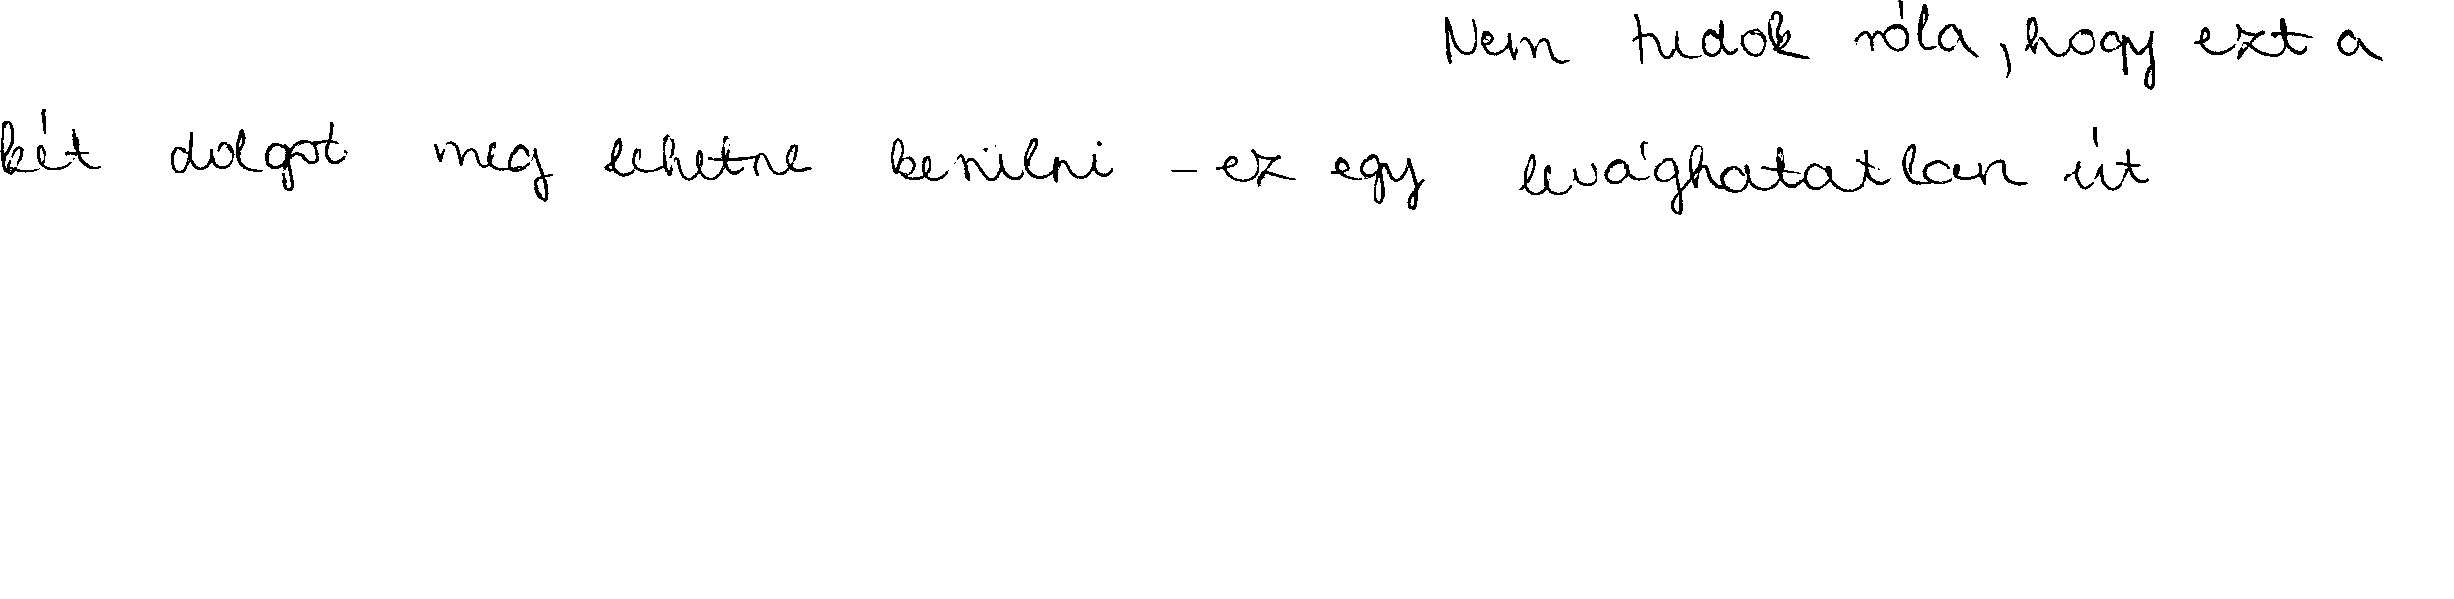 Nem tudok róla, hogy ezt a
két dolgot meg lehetne kerülni - ez egy levághatatlan út